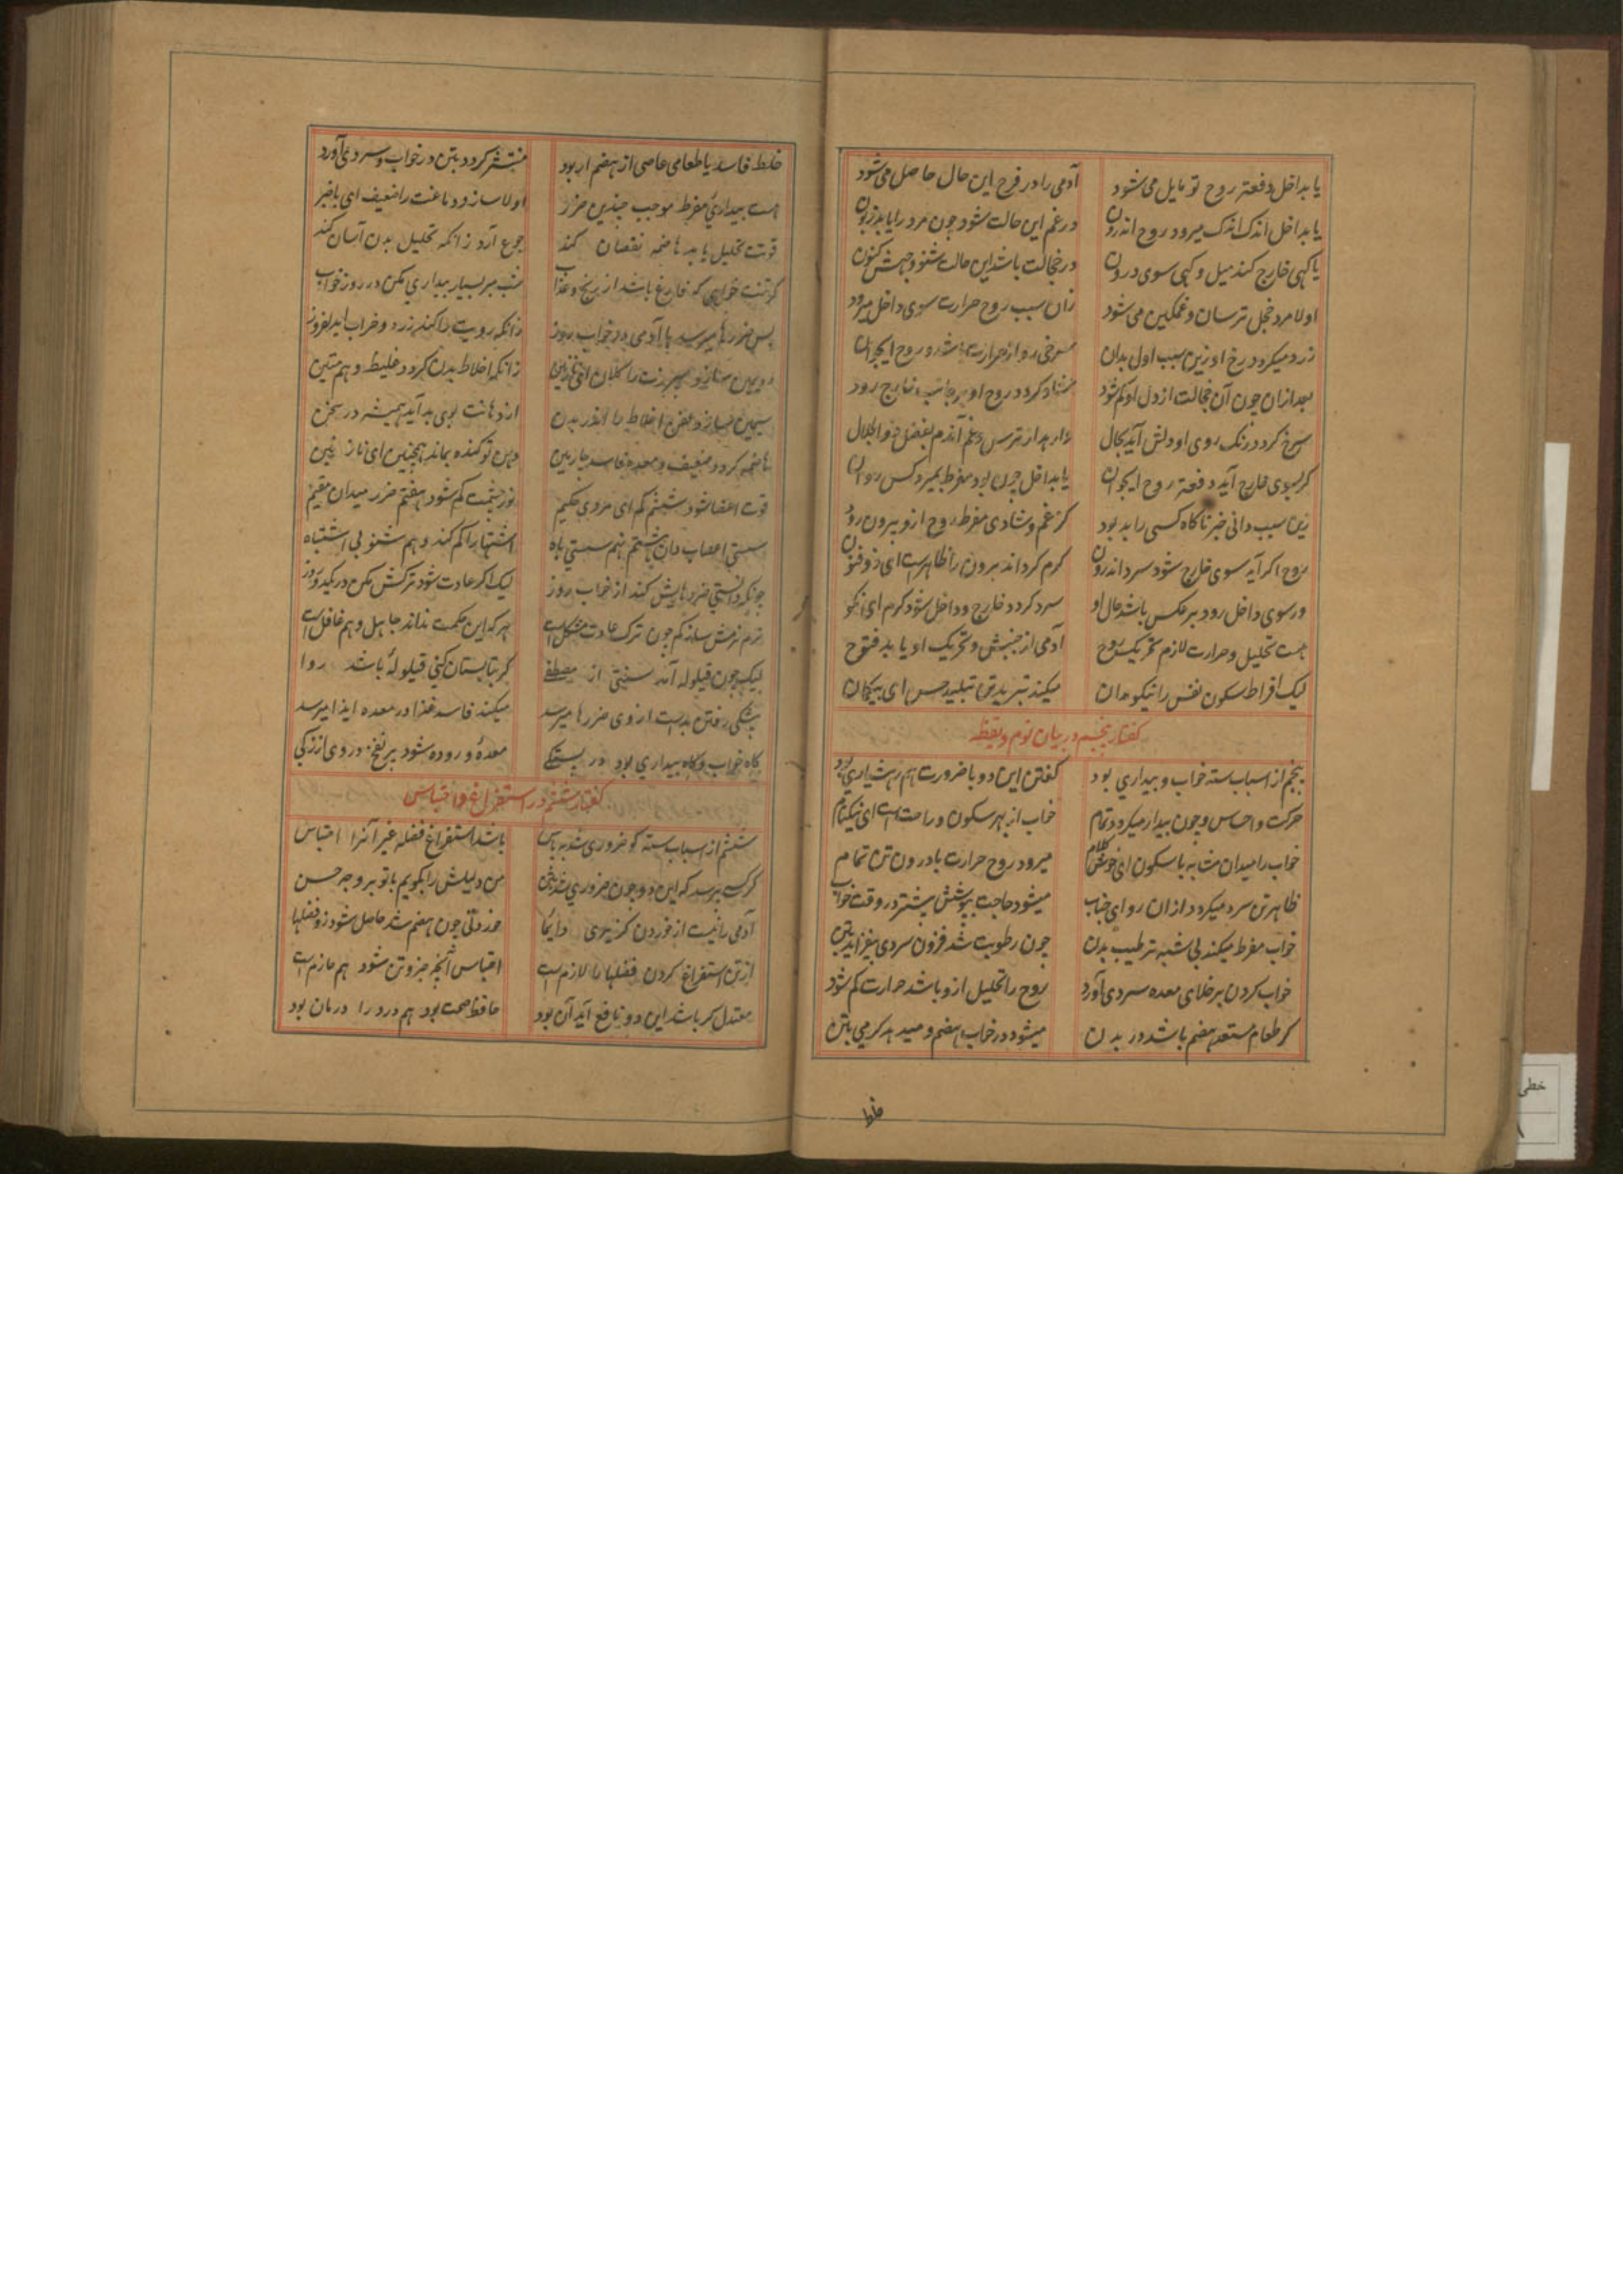 یا بداخل دفعة روح تو مایل می شود آدمی را در فرح این حال حاصل می شود
یا بداخل اندک اندک میرود روح اندرون در غم این حالت شود چون مرد را یابد زبون
یا کهی خارج کند میل و کهی سوی درون در خجالت باشد این حالت شنو وجهش کنون
اولا مرد خجل ترسان و غمکین می شود زان سبب روح حرارت سوی داخل میرود
زرد میکردد رخ او زین سبب اول بدان سرخی رو از حرارت باشد و روح ایجوان
بعد ازان چون آن خجالت از دل او کم شود شاد کردد روح او بر جانب خارج رود
سرخ کردد رنک روی او دلش آید بحال
کر بسوی خارج آید دفعة روح ایجوان یا بداخل چون بود مفرط بمیرد کس روان
زین سبب دانی خبر ناکاه کسی را بد بود کز غم و شادی مفرط روح ازو بیرون رود
روح اکر آید سوی خارج شود سرد اندرون کرم کرداند برون را ظاهرست ای ذوفنون
ور سوی داخل رود برعکس باشد حال او سرد کردد خارج و داخل شود کرم ای نکو
هست تحلیل و حرارت لازم تحریک روح آدمی از جنبش و تحریک او یابد فتوح
لیک افراط سکون نفس را نیکو مدان میکند تبرید تن تبلید حس ای بیکمان
کفتار پنجم در بیان نوم و یقظه
پنجم از اسباب سته خواب و بیداری بود کفتن این دو با ضرورت هم ز هشیاری بود
حرکت و احساس و چون بیدار میکردد تمام خواب از بهر سکون و راحت است ای نیکنام
خواب را میدان مشابه با سکون ای خوش کلام میرود روح حرارت با درون تن تمام
ظاهر تن سرد میکردد ازان رو ای جناب میشود حاجت بپوشش بیشتر در وقت خواب
خواب مفرط میکند بی شبهه ترطیب بدن چون رطوبت شد فزون سردی بیفزاید بتن
خواب کردن بر خلای معده سردی آورد روح را تحلیل ازو باشد حرارت کم شود
کر طعام مستعد هضم باشد در بدن میشود در خواب هضم و میدهد کرمی بتن
خلط
خلط فاسد یا طعامی عاصی از هضم ار بود منتشر کردد بتن در خواب و سردی آورد
هست بیداری مفرط موجب چندین ضرر اولا سازد دماغت را ضعیف ای باخبر
قوتت تحلیل یابد هاضمه نقصان کند جوع آرد زانکه تحلیل بدن آسان کند
کر تنت خواهی که فارغ باشد از رنج و عذاب شب مبر بسیار بیداری مکن در روز خواب
پس ضررها میرسد با آدمی در خواب روز زانکه رویت را کند زرد و خراب
زانکه اخلاط بدن کردد غلیظ و هم متین
سیمین سازد عفن اخلاط را اندر بدن از دهانت بوی بد آید همیشه در سخن
هاضمه کردد ضعیف و معده فاسد چارمین دهن تو کنده بماند همچنین ای نازنین
قوت اعضا شود ششم کم ای مردی حکیم نور چشمت کم شود هفتم ضرر میدان مقیم
سستی اعصاب دان هشتم نهم سستی باه اشتها را کم کند دهم شنو بی اشتباه
چونکه دانستی ضررهایش کند از خواب روز لیک اکر عادت شود ترکش مکن در یکدو روز
نرم نرمش ساز کم چون ترک عادت مشکل است هر که این حکمت نداند جاهل و هم غافل است
لیک چون قیلوله آمد سنتی از مصطفی کر بتابستان کنی قیلوله باشد روا
میکند فاسد غذا در معده ایذا میرسد
کاه خواب و کاه بیداری بود در معده و روده شود پر نفخ
کفتار ششم در استفراغ و احتباس
ششم از اسباب سته کو ضروری شد باشد استفراغ فضله غیر آنرا احتباس
کر کسی پرسد که این دو چون ضروری شد من دلیلش را بکویم با تو بر وجه حسن
آدمی را نیست از خوردن کزیری دایما خوردنی چون هضم شد حاصل شود زو فضلها
از تن استفراغ کردن فضلها را لازم است احتباس آنچه جزو تن شود هم جازم است
معتدل کر باشد این دو نافع آید آن بود حافظ صحت بود هم درد را درمان بود
خطی